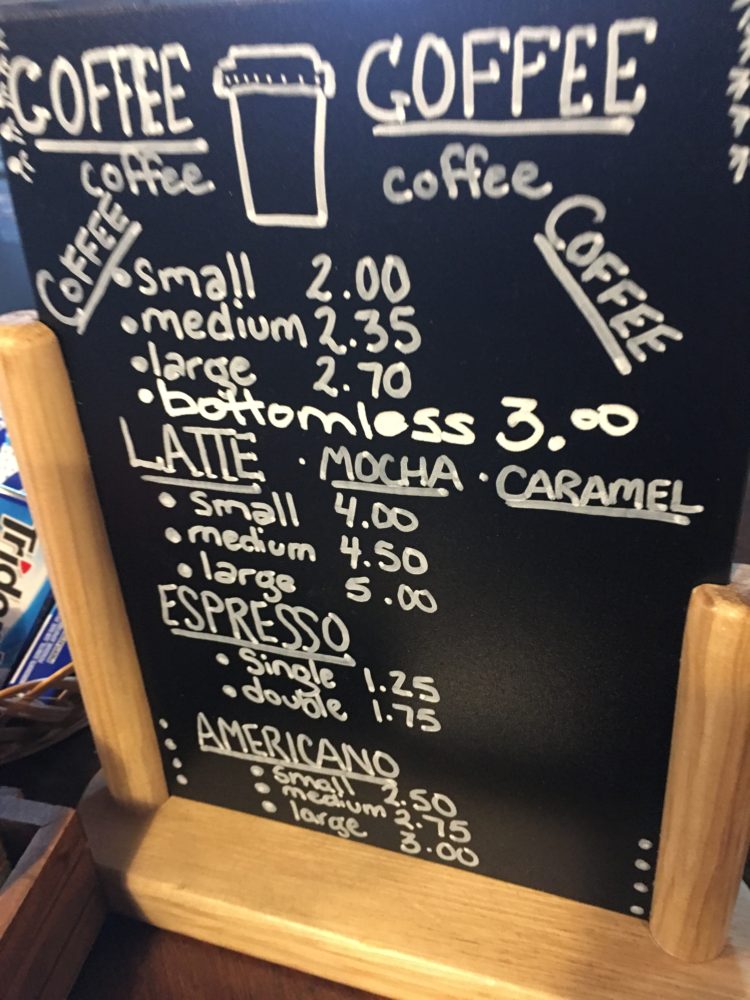 COFFEE COFFEE
coffee coffee
COFFEE COFFEE
• small 2.00
• medium 2.35
• large 2.70
• bottomless 3.00
LATTE • MOCHA • CARAMEL
• small 4.00
• medium 4.50
• large 5.00
ESPRESSO
• single 1.25
• double 1.75
AMERICANO
• small 2.50
• medium 2.75
• large 3.00